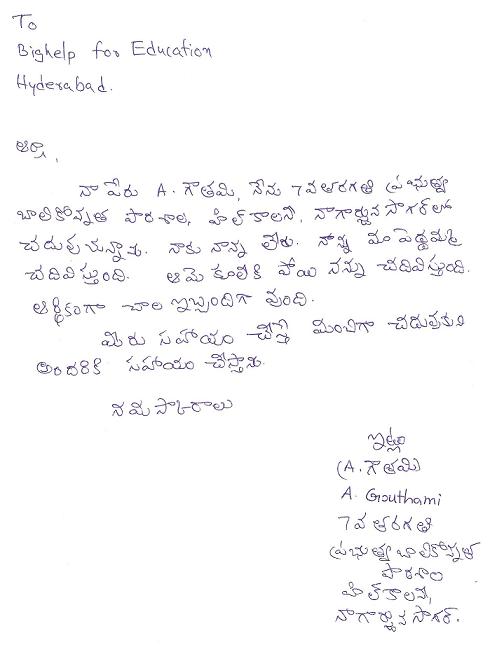 To
Bighelp for Education
Hyderabad.
ఆర్యా,
నా పేరు A. గౌతమి, నేను 7వ తరగతి ప్రభుత్వ
బాలికోన్నత పాఠశాల, హిల్ కాలనీ, నాగార్జున సాగర్‌లో
చదువుచున్నాను. నాకు నాన్న లేరు. నన్ను మా పెద్దమ్మ
చదివిస్తుంది. ఆమె కూలికి పోయి నన్ను చదివిస్తుంది.
ఆర్థికంగా చాల ఇబ్బందిగా వుంది.
మీరు సహాయం చేస్తే మంచిగా చదువుకుని
అందరికి సహాయం చేస్తాను.
నమస్కారాలు
ఇట్లు
(A. గౌతమి
A. Gouthami
7వ తరగతి
ప్రభుత్వ బాలికోన్నత
పాఠశాల
హిల్ కాలనీ,
నాగార్జున సాగర్.